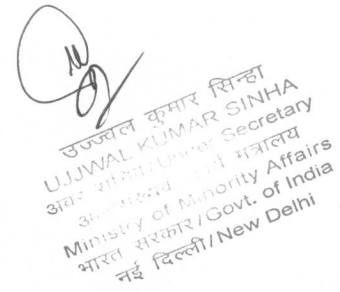 उज्ज्वल कुमार सिन्हा
UJJWAL KUMAR SINHA
अवर सचिव/Under Secretary
मंत्रालय
Ministry of Minority Affairs
भारत सरकार/Govt. of India
नई दिल्ली/New Delhi